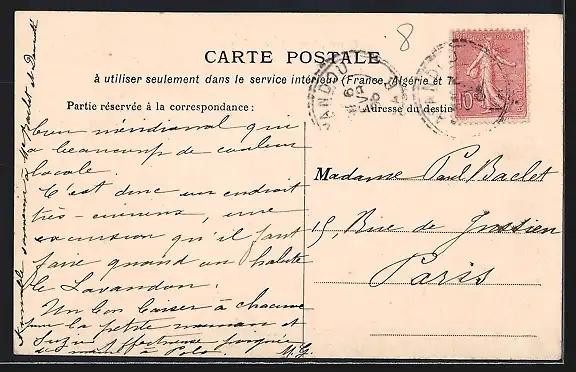 8
CARTE POSTALE
à utiliser seulement dans le service intérieur (France, Algérie et T
Partie réservée à la correspondance :
Adresse du destin
10
bien méridional qui
a beaucoup de couleur
locale.
C'est donc un endroit
très-curieux, une
excursion qu'il faut
faire quand on habite
le Lavandou.
Un bon baiser à chacune
pour la petite maman et
Suzie. Affectueuse poignée
de main à Polo. M. G.
Madame Paul Baclet
15, Rue de Jussieu
Paris